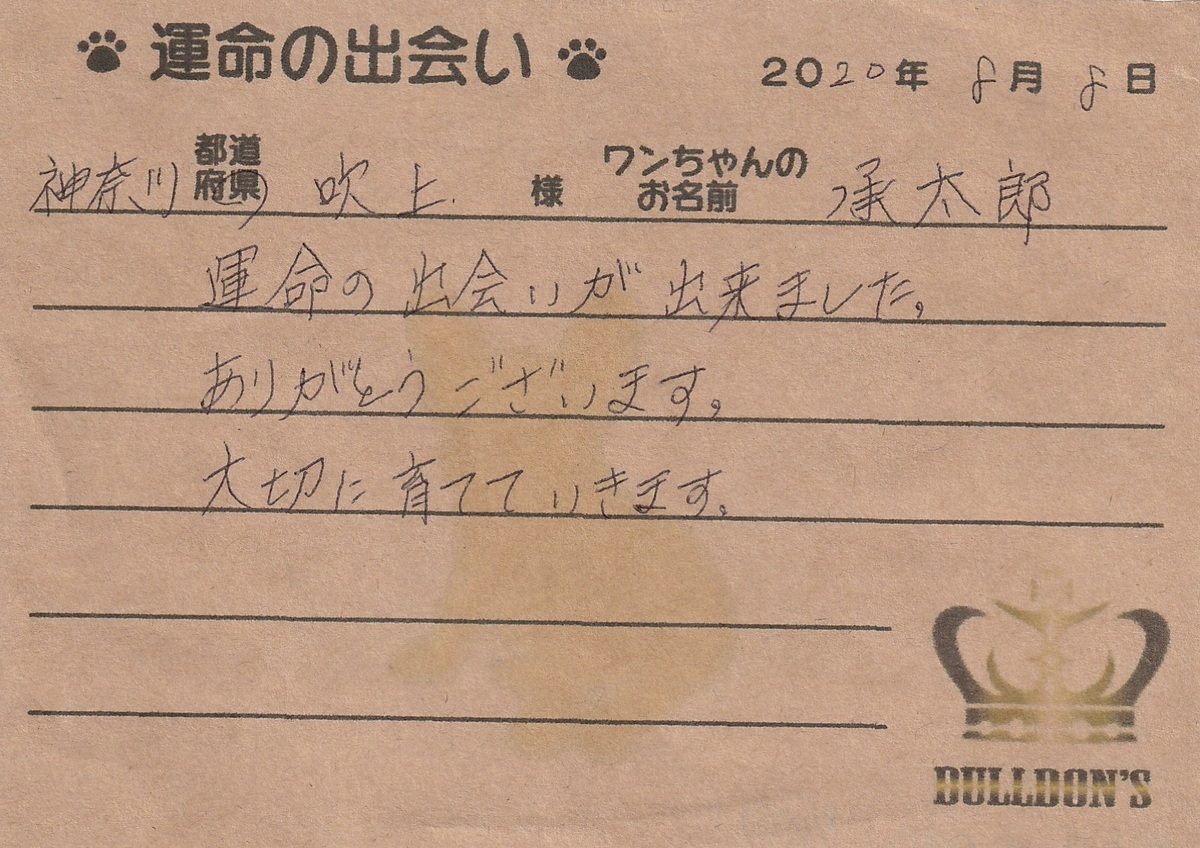 運命の出会い 2020年 8月 8日
神奈川 都道府県 吹上 様 ワンちゃんのお名前 承太郎
運命の出会いが出来ました。
ありがとうございます。
大切に育てていきます。
BULLDON'S